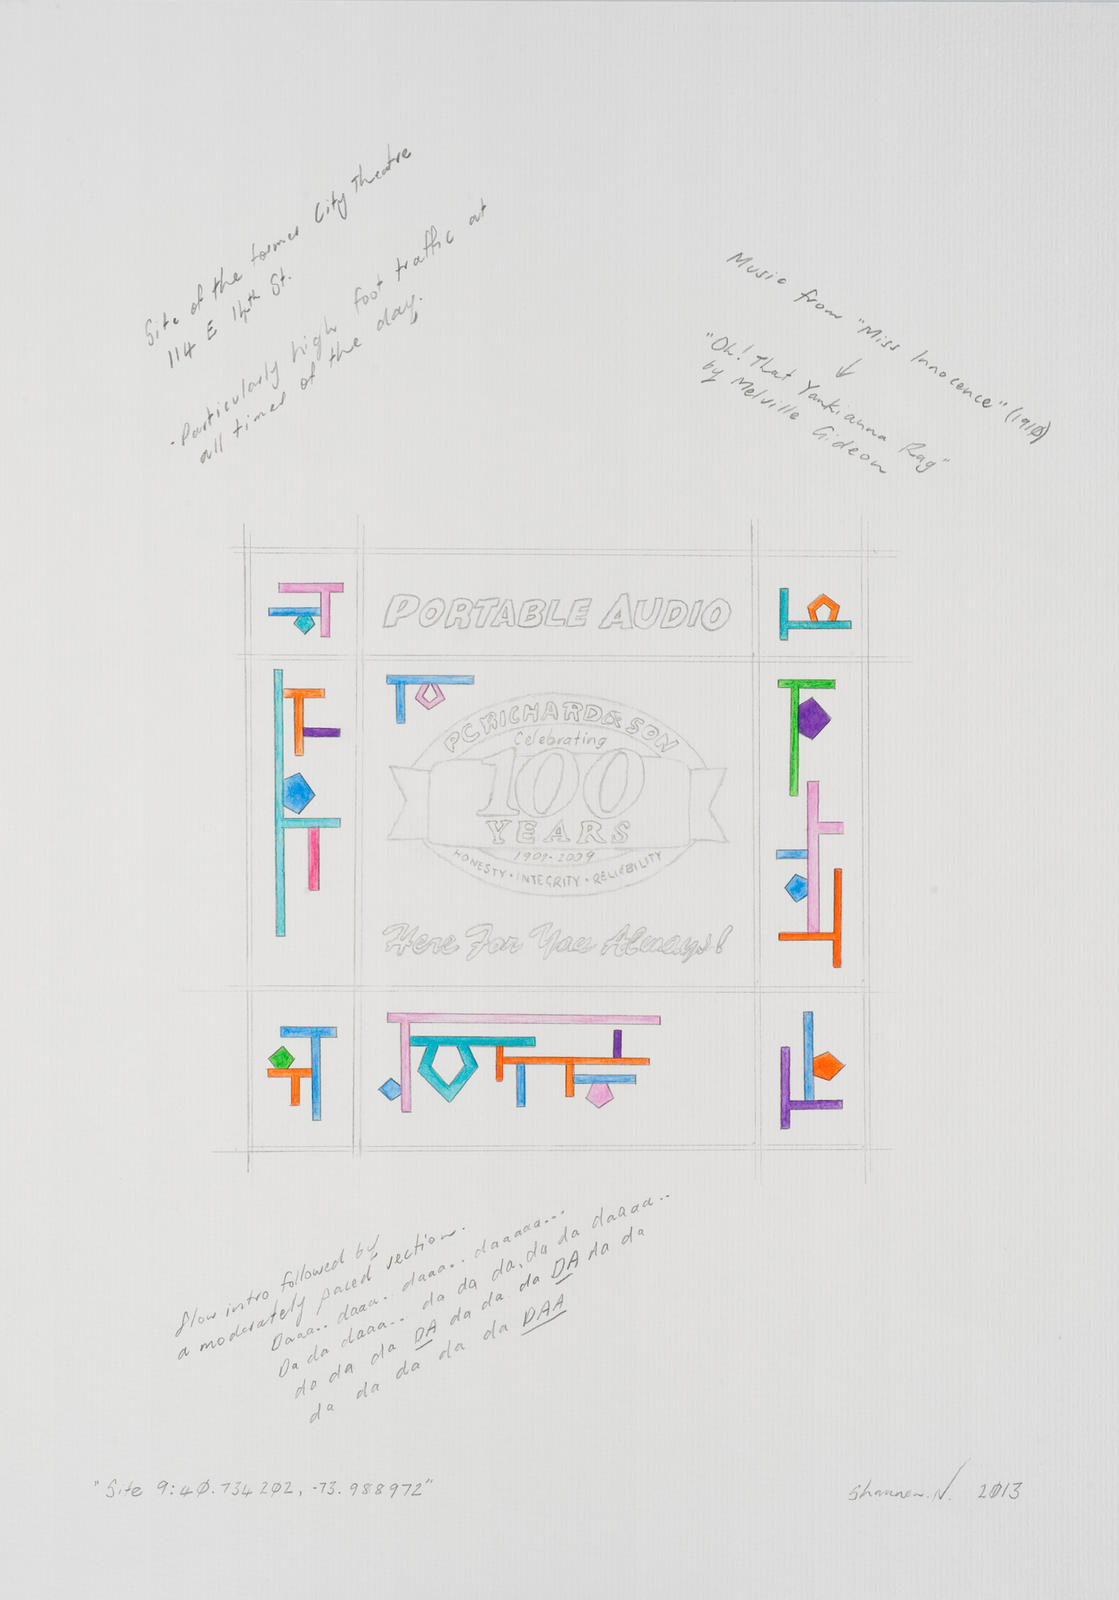 Site of the former City Theatre
114 E 14th St.
- Particularly high foot traffic at
all times of the day.
Music from "Miss Innocence" (1910)
↓
"Oh! That Yankianna Rag"
by Melville Gideon
PORTABLE AUDIO
PC RICHARD & SON
Celebrating
100
YEARS
1909-2009
HONESTY · INTEGRITY · RELIEBILITY
Here For You Always!
Slow intro followed by
a moderately paced section.
Daaa.. daaa.. daaa.. daaaaa...
Da da daaa.. da da da, da da daaaa..
da da da DA da da da DA da da
da da da da da DAA
"Site 9: 40.734202, -73.988972"
Shannon. N. 2013